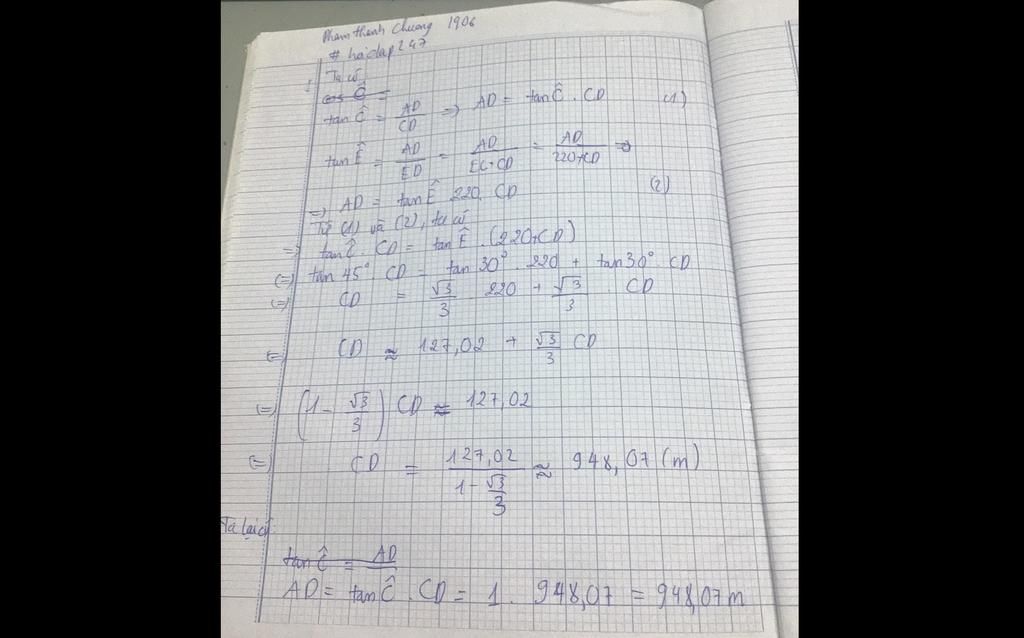 Phạm thanh Chương 1906
# hoidap247
Ta có
cos Ĉ =
tan Ĉ = AD/CD => AD = tan Ĉ . CD (1)
tan Ê = AD/ED = AD/EC+CD = AD/220+CD =>
=> AD = tan Ê 220. CD (2)
Từ (1) và (2), ta có
=> tan Ĉ. CD = tan Ê. (220+CD)
(=) tan 45°. CD = tan 30°. 220 + tan 30°. CD
(=) CD = √3/3 . 220 + √3/3 . CD
(= CD ≈ 127,02 + √3/3 CD
(=) (1 - √3/3) CD ≈ 127,02
(=) CD = 127,02/1-√3/3 ≈ 948,07 (m)
Ta lại có:
tan Ĉ = AD
AD = tan Ĉ . CD = 1. 948,07 = 948,07m